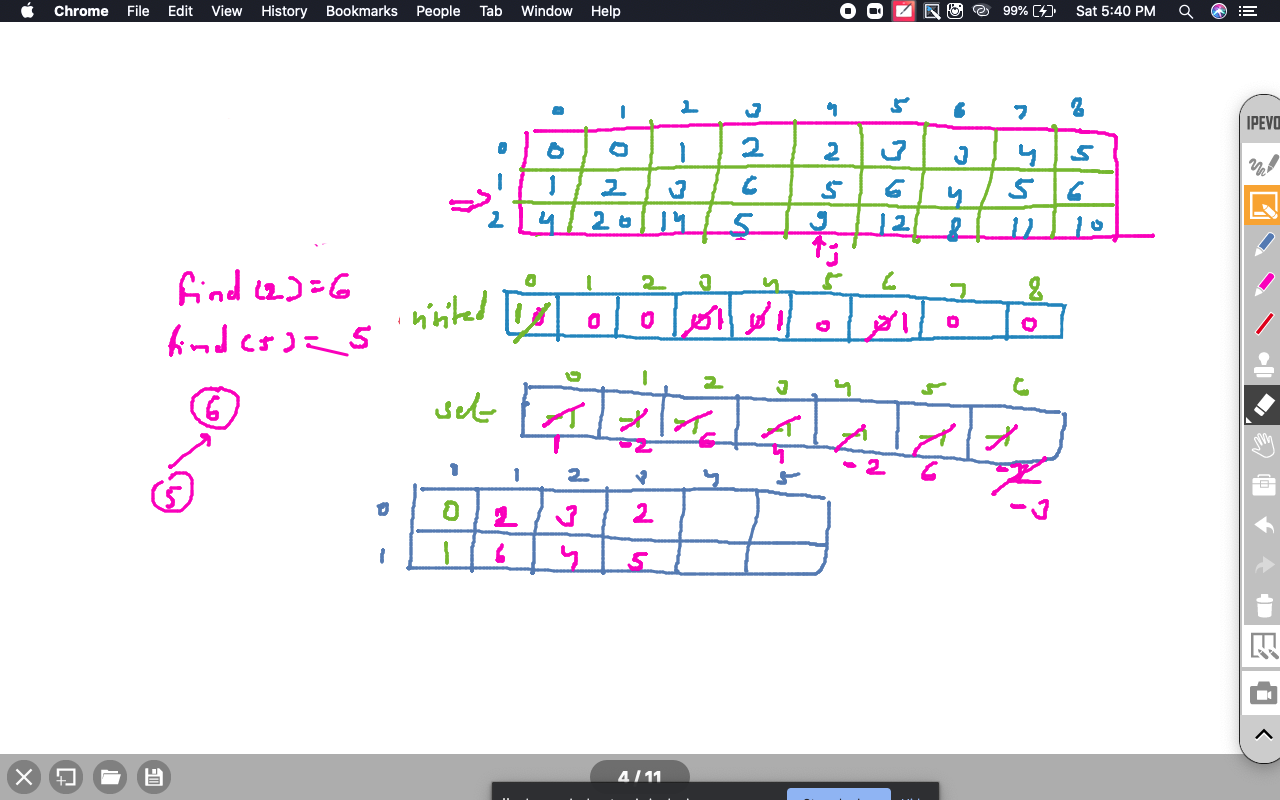 Chrome File Edit View History Bookmarks People Tab Window Help 99% Sat 5:40 PM
0 1 2 3 4 5 6 7 8
IPEVO
0 0 0 1 2 2 3 3 4 5
1 1 2 3 6 5 6 4 5 6
=> 2 4 20 14 5 9 12 8 11 10
j
find (2) = 6
0 1 2 3 4 5 6 7 8
visited 1 0 0 0 0 1 0 1 0 0 1 0 0
find (5) = 5
0 1 2 3 4 5 6
set -1 -1 -1 -1 -1 -1 -1
6
1 -2 6 4 -2 6 -2
5
-3
0 1 2 3 4 5
0 0 2 3 2
1 1 6 4 5
4 / 11